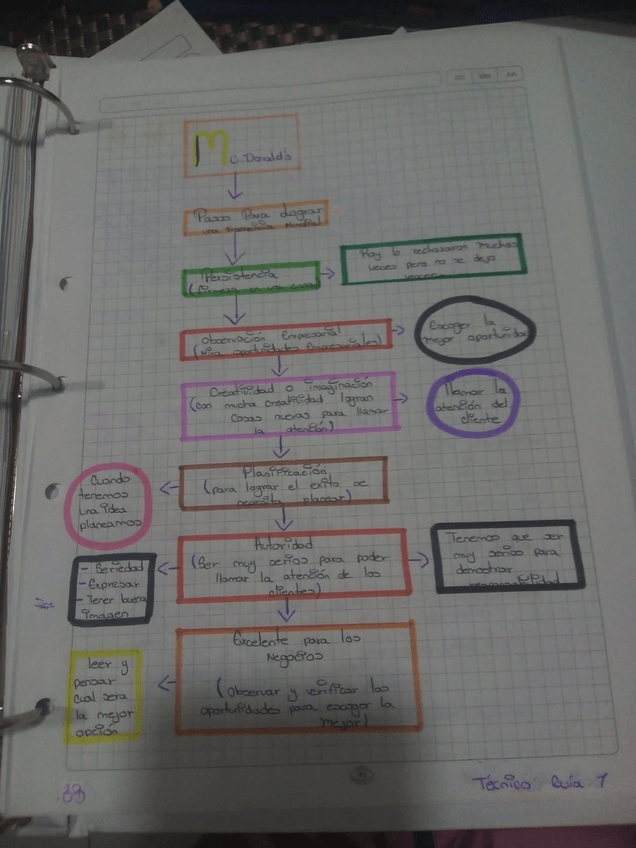 M c.Donald's
Pasos Para Lograr
una Mundial
Persistencia
Ray lo rechazaron muchas
veces pero no se dejo
Observación Empresarial
(Mira oportunidades Empresariales)
Escoger la
mejor oportunidad
Creatividad o imaginación
(con mucha creatividad logran
cosas nuevas para llamar
la atención)
llamar la
atención del
cliente
Planificación
(para lograr el exito se
necesita planear)
Cuando
tenemos
una idea
planeamos
Autoridad
(Ser muy serios para poder
llamar la atención de los
clientes)
- Seriedad
- Expresar
- Tener buena
imagen
Tenemos que ser
muy serios para
demostrar
Excelente para los
Negocios
(Observar y verificar las
oportunidades para escoger la
mejor)
leer y
pensar
cual sera
la mejor
opción
33
Técnico Guía 1